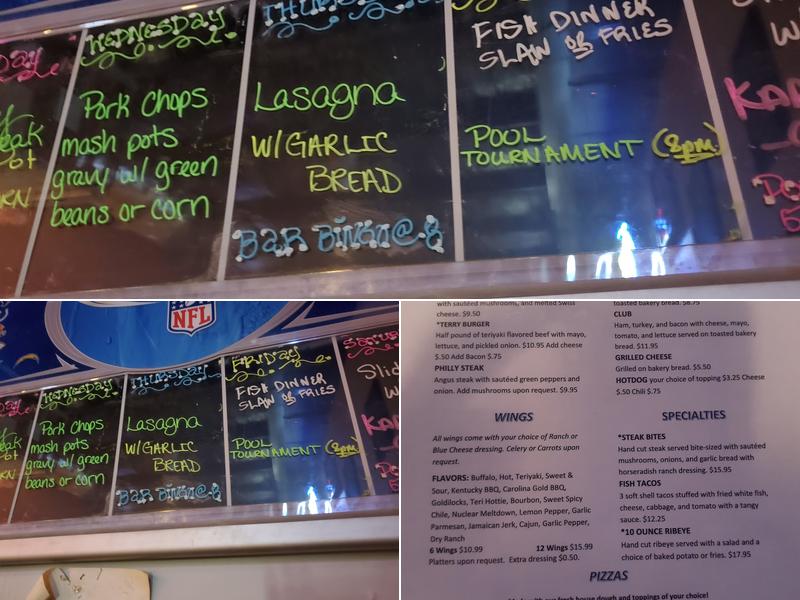 WEDNESDAY
Pork Chops
mash pots
gravy w/ green
beans or corn
THURSDAY
Lasagna
W/GARLIC
BREAD
BAR BINGO @ 8
FISH DINNER
SLAW OR FRIES
POOL
TOURNAMENT (8pm)
NFL
WEDNESDAY
Pork Chops
mash pots
gravy w/ green
beans or corn
THURSDAY
Lasagna
W/GARLIC
BREAD
BAR BINGO @ 8
FRIDAY
FISH DINNER
SLAW OR FRIES
POOL
TOURNAMENT (8pm)
with sautéed mushrooms, and melted Swiss
cheese. $9.50
*TERRY BURGER
Half pound of teriyaki flavored beef with mayo,
lettuce, and pickled onion. $10.95 Add cheese
$.50 Add Bacon $.75
PHILLY STEAK
Angus steak with sautéed green peppers and
onion. Add mushrooms upon request. $9.95
WINGS
All wings come with your choice of Ranch or
Blue Cheese dressing. Celery or Carrots upon
request.
FLAVORS: Buffalo, Hot, Teriyaki, Sweet &
Sour, Kentucky BBQ, Carolina Gold BBQ,
Goldilocks, Teri Hottie, Bourbon, Sweet Spicy
Chile, Nuclear Meltdown, Lemon Pepper, Garlic
Parmesan, Jamaican Jerk, Cajun, Garlic Pepper,
Dry Ranch
6 Wings $10.99 12 Wings $15.99
Platters upon request. Extra dressing $0.50.
toasted bakery bread. $8.75
CLUB
Ham, turkey, and bacon with cheese, mayo,
tomato, and lettuce served on toasted bakery
bread. $11.95
GRILLED CHEESE
Grilled on bakery bread. $5.50
HOTDOG your choice of topping $3.25 Cheese
$.50 Chili $.75
SPECIALTIES
*STEAK BITES
Hand cut steak served bite-sized with sautéed
mushrooms, onions, and garlic bread with
horseradish ranch dressing. $15.95
FISH TACOS
3 soft shell tacos stuffed with fried white fish,
cheese, cabbage, and tomato with a tangy
sauce. $12.25
*10 OUNCE RIBEYE
Hand cut ribeye served with a salad and a
choice of baked potato or fries. $17.95
PIZZAS
with our fresh house dough and toppings of your choice!